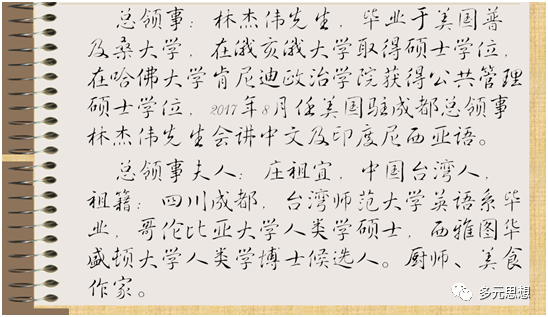 总领事：林杰伟先生，毕业于美国普
及桑大学，在俄亥俄大学取得硕士学位，
在哈佛大学肯尼迪政治学院获得公共管理
硕士学位，2017年8月任美国驻成都总领事
林杰伟先生会讲中文及印度尼西亚语。
总领事夫人：庄祖宜，中国台湾人，
祖籍：四川成都，台湾师范大学英语系毕
业，哥伦比亚大学人类学硕士，西雅图华
盛顿大学人类学博士候选人。厨师、美食
作家。
多元思想